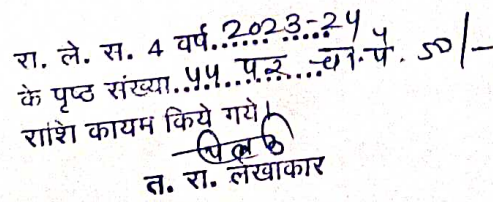 रा. ले. स. 4 वर्ष..2023-24
के पृष्ठ संख्या..44..पर...चा.पे. 50/-
राशि कायम किये गये।
त. रा. लेखाकार